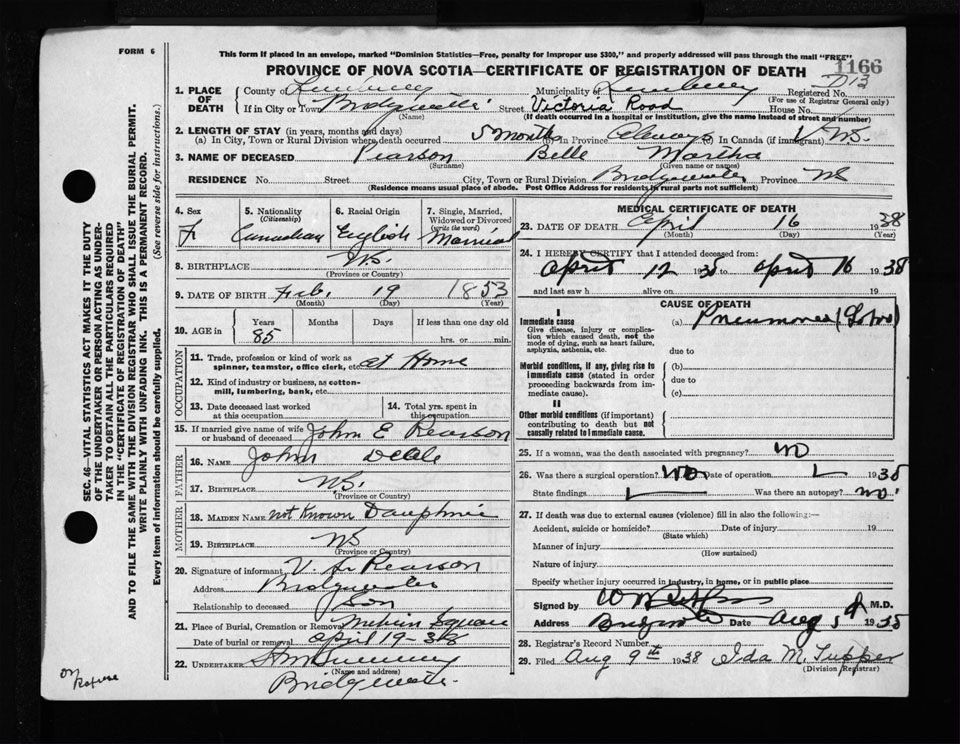 FORM 6
This form if placed in an envelope, marked "Dominion Statistics—Free, penalty for improper use $300," and properly addressed will pass through the mail "FREE"
1166
PROVINCE OF NOVA SCOTIA—CERTIFICATE OF REGISTRATION OF DEATH
1. PLACE OF DEATH
County of Lunenburg Municipality of Lunenburg Registered No. 213
(For use of Registrar General only)
If in City or Town Bridgewater Street Victoria Road House No.
(Name) (If death occurred in a hospital or institution, give the name instead of street and number)
2. LENGTH OF STAY (in years, months and days)
(a) In City, Town or Rural Division where death occurred 5 months (b) in Province Always (c) in Canada (if immigrant)
3. NAME OF DECEASED Pearson Belle Martha
(Surname) (Given name or names)
RESIDENCE No. Street City, Town or Rural Division Bridgewater Province NS
(Residence means usual place of abode. Post Office Address for residents in rural parts not sufficient)
4. Sex F
5. Nationality (Citizenship) Canadian
6. Racial Origin English
7. Single, Married, Widowed or Divorced (write the word) Married
8. BIRTHPLACE N.S.
(Province or Country)
9. DATE OF BIRTH Feb. 19 1853
(Month) (Day) (Year)
10. AGE in Years 85 Months Days If less than one day old hrs. or min.
OCCUPATION
11. Trade, profession or kind of work as spinner, teamster, office clerk, etc. at Home
12. Kind of industry or business, as cotton-mill, lumbering, bank, etc.
13. Date deceased last worked at this occupation
14. Total yrs. spent in this occupation
15. If married give name of wife or husband of deceased John E Pearson
FATHER
16. NAME John
17. BIRTHPLACE N.S.
(Province or Country)
MOTHER
18. MAIDEN NAME not Known Dauphinee
19. BIRTHPLACE NS
(Province or Country)
20. Signature of informant Pearson
Address Bridgewater
Relationship to deceased Son
21. Place of Burial, Cremation or Removal Square
Date of burial or removal april 19-38
22. UNDERTAKER
(Name and address)
Bridgewater
MEDICAL CERTIFICATE OF DEATH
23. DATE OF DEATH April 16 1938
(Month) (Day) (Year)
24. I HEREBY CERTIFY that I attended deceased from:
April 12 1938 to April 16 1938
and last saw h alive on 19
CAUSE OF DEATH
I
Immediate cause
Give disease, injury or complication which caused death, not the mode of dying, such as heart failure, asphyxia, asthenia, etc.
(a) Pneumonea (Lobar)
due to
Morbid conditions, if any, giving rise to immediate cause (stated in order proceeding backwards from immediate cause).
(b)
due to
(c)
II
Other morbid conditions (if important) contributing to death but not causally related to immediate cause.
25. If a woman, was the death associated with pregnancy? NO
26. Was there a surgical operation? NO Date of operation 1938
State findings Was there an autopsy? no
27. If death was due to external causes (violence) fill in also the following:—
Accident, suicide or homicide? Date of injury 19
(State which)
Manner of injury
(How sustained)
Nature of injury
Specify whether injury occurred in industry, in home, or in public place
Signed by M.D.
Address Bridgewater Date Aug 1938
28. Registrar's Record Number
29. Filed Aug 9th 1938 Ida M. Tupper
(Division Registrar)
SEC. 46—VITAL STATISTICS ACT MAKES IT THE DUTY OF THE UNDERTAKER OR PERSON ACTING AS UNDERTAKER TO OBTAIN ALL THE PARTICULARS REQUIRED IN THE "CERTIFICATE OF REGISTRATION OF DEATH" AND TO FILE THE SAME WITH THE DIVISION REGISTRAR WHO SHALL ISSUE THE BURIAL PERMIT.
WRITE PLAINLY WITH UNFADING INK. THIS IS A PERMANENT RECORD.
Every item of information should be carefully supplied. (See reverse side for instructions.)